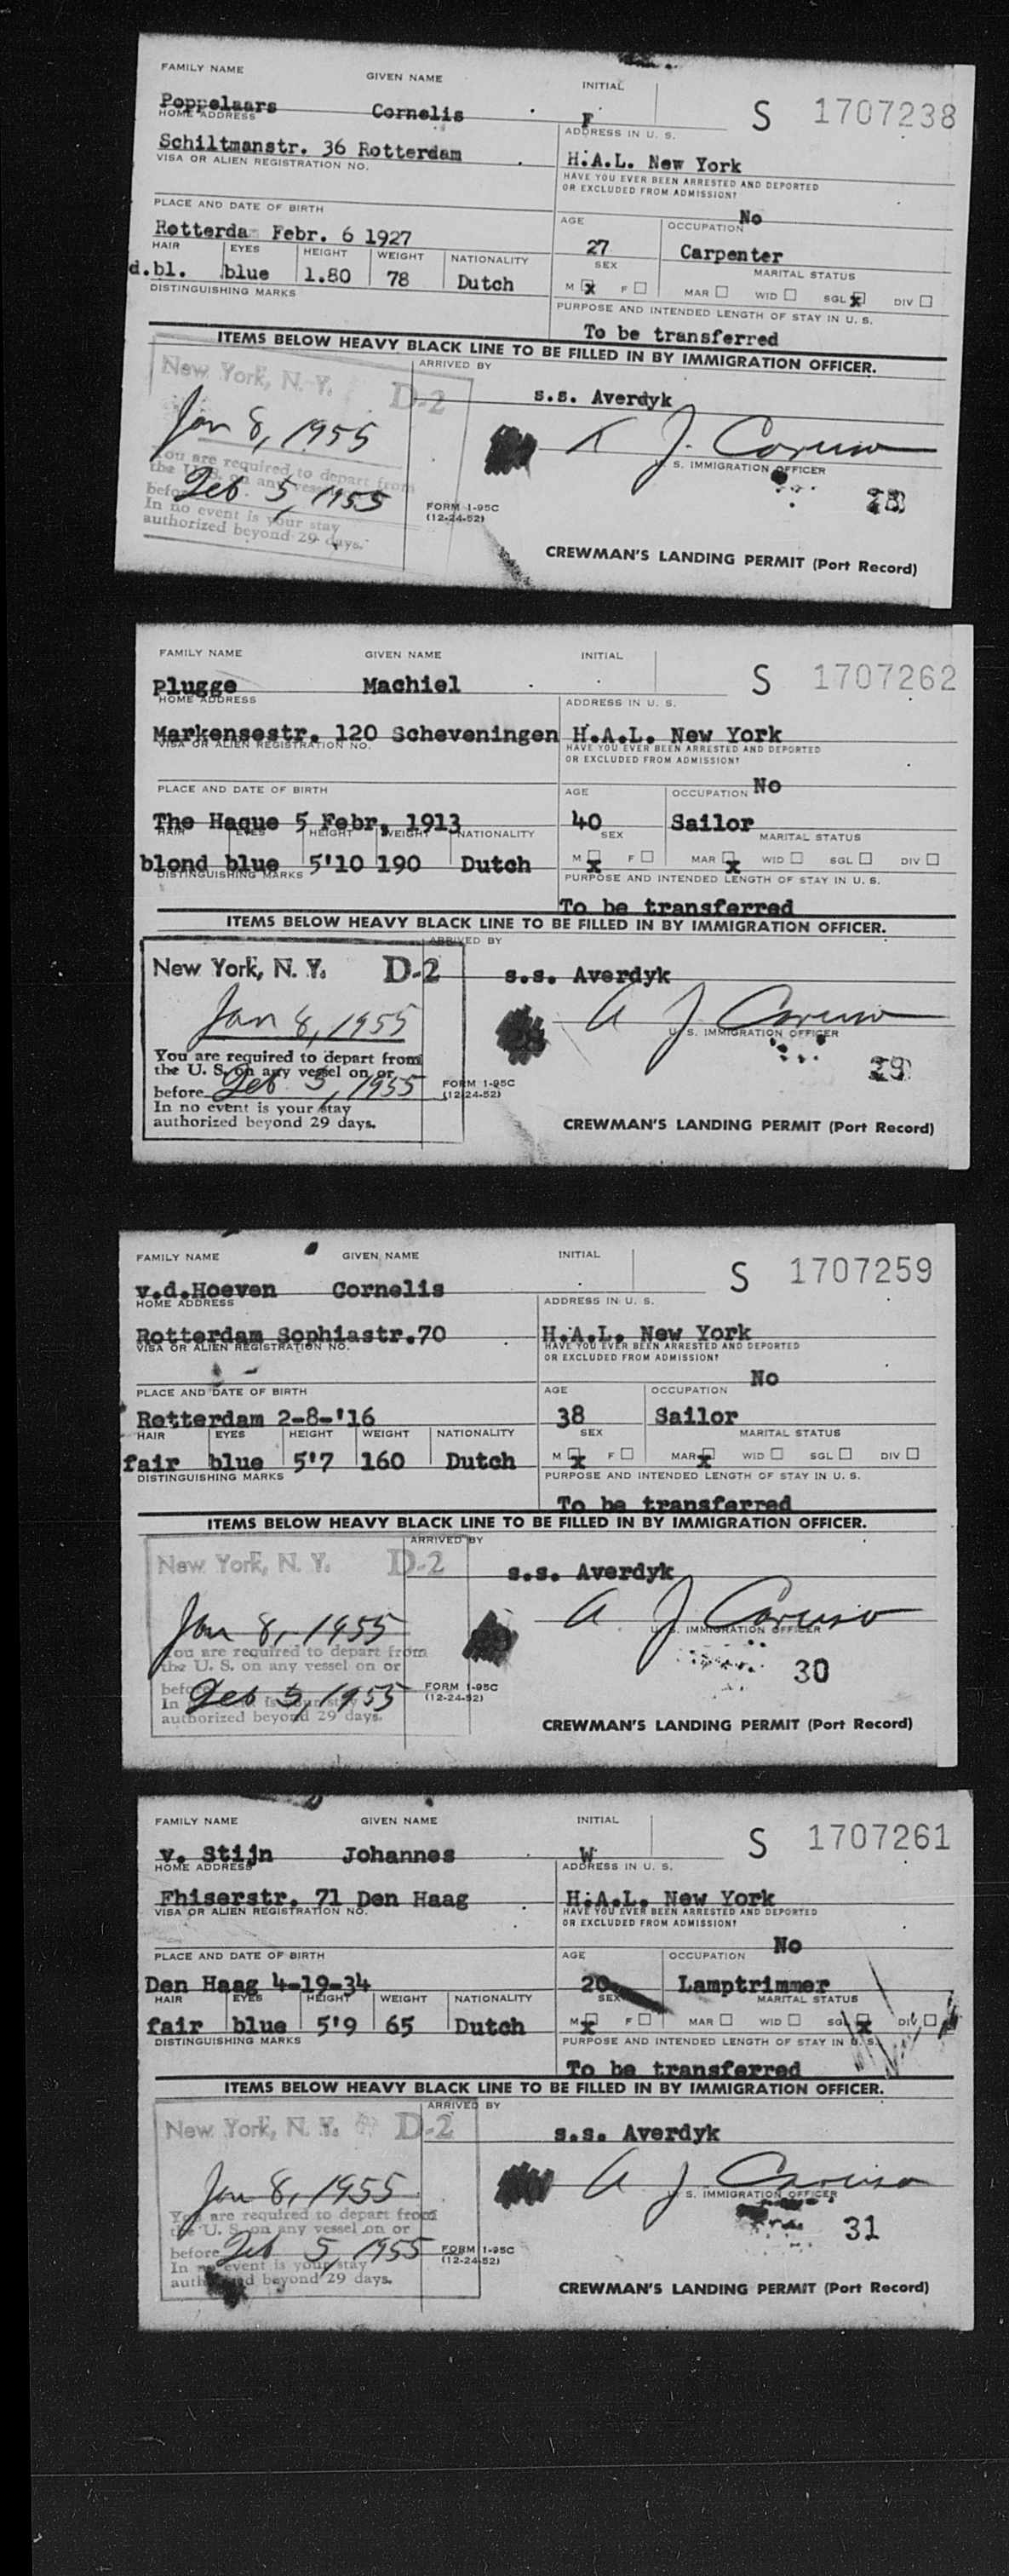 FAMILY NAME GIVEN NAME INITIAL
Poppelaars Cornelis F S 1707238
HOME ADDRESS ADDRESS IN U. S.
Schiltmanstr. 36 Rotterdam H.A.L. New York
VISA OR ALIEN REGISTRATION NO. HAVE YOU EVER BEEN ARRESTED AND DEPORTED
OR EXCLUDED FROM ADMISSION?
No
PLACE AND DATE OF BIRTH AGE OCCUPATION
Rotterda Febr. 6 1927 27 Carpenter
HAIR EYES HEIGHT WEIGHT NATIONALITY SEX MARITAL STATUS
d.bl. blue 1.80 78 Dutch M x F MAR WID SGL x DIV
DISTINGUISHING MARKS PURPOSE AND INTENDED LENGTH OF STAY IN U. S.
To be transferred
ITEMS BELOW HEAVY BLACK LINE TO BE FILLED IN BY IMMIGRATION OFFICER.
New York, N. Y. D-2 ARRIVED BY
s.s. Averdyk
Jan 8, 1955 J. Caruso
You are required to depart from U. S. IMMIGRATION OFFICER
the U. S. on any vessel
before Feb. 5, 1955 28
In no event is your stay FORM I-95C
authorized beyond 29 days. (12-24-52)
CREWMAN'S LANDING PERMIT (Port Record)
FAMILY NAME GIVEN NAME INITIAL
Plugge Machiel S 1707262
HOME ADDRESS ADDRESS IN U. S.
Markensestr. 120 Scheveningen H.A.L. New York
VISA OR ALIEN REGISTRATION NO. HAVE YOU EVER BEEN ARRESTED AND DEPORTED
OR EXCLUDED FROM ADMISSION?
No
PLACE AND DATE OF BIRTH AGE OCCUPATION
The Hague 5 Febr. 1913 40 Sailor
HAIR EYES HEIGHT WEIGHT NATIONALITY SEX MARITAL STATUS
blond blue 5'10 190 Dutch M x F MAR x WID SGL DIV
DISTINGUISHING MARKS PURPOSE AND INTENDED LENGTH OF STAY IN U. S.
To be transferred
ITEMS BELOW HEAVY BLACK LINE TO BE FILLED IN BY IMMIGRATION OFFICER.
ARRIVED BY
New York, N. Y. D-2 s.s. Averdyk
Jan 8, 1955 A J Caruso
U. S. IMMIGRATION OFFICER
You are required to depart from
the U. S. on any vessel on or
before Feb. 5, 1955 29
In no event is your stay FORM I-95C
authorized beyond 29 days. (12-24-52)
CREWMAN'S LANDING PERMIT (Port Record)
FAMILY NAME GIVEN NAME INITIAL
v.d.Hoeven Cornelis S 1707259
HOME ADDRESS ADDRESS IN U. S.
Rotterdam Sophiastr.70 H.A.L. New York
VISA OR ALIEN REGISTRATION NO. HAVE YOU EVER BEEN ARRESTED AND DEPORTED
OR EXCLUDED FROM ADMISSION?
No
PLACE AND DATE OF BIRTH AGE OCCUPATION
Rotterdam 2-8-'16 38 Sailor
HAIR EYES HEIGHT WEIGHT NATIONALITY SEX MARITAL STATUS
fair blue 5'7 160 Dutch M x F MAR x WID SGL DIV
DISTINGUISHING MARKS PURPOSE AND INTENDED LENGTH OF STAY IN U. S.
To be transferred
ITEMS BELOW HEAVY BLACK LINE TO BE FILLED IN BY IMMIGRATION OFFICER.
ARRIVED BY
New York, N. Y. D-2 s.s. Averdyk
Jan 8, 1955 A J Caruso
You are required to depart from U. S. IMMIGRATION OFFICER
the U. S. on any vessel on or
before Feb 5, 1955 30
In event is your stay FORM I-95C
authorized beyond 29 days. (12-24-52)
CREWMAN'S LANDING PERMIT (Port Record)
FAMILY NAME GIVEN NAME INITIAL
v. Stijn Johannes W S 1707261
HOME ADDRESS ADDRESS IN U. S.
Fhiserstr. 71 Den Haag H.A.L. New York
VISA OR ALIEN REGISTRATION NO. HAVE YOU EVER BEEN ARRESTED AND DEPORTED
OR EXCLUDED FROM ADMISSION?
No
PLACE AND DATE OF BIRTH AGE OCCUPATION
Den Haag 4-19-34 20 Lamptrimmer
HAIR EYES HEIGHT WEIGHT NATIONALITY SEX MARITAL STATUS
fair blue 5'9 65 Dutch M x F MAR WID SGL x DIV
DISTINGUISHING MARKS PURPOSE AND INTENDED LENGTH OF STAY IN U. S.
To be transferred
ITEMS BELOW HEAVY BLACK LINE TO BE FILLED IN BY IMMIGRATION OFFICER.
ARRIVED BY
New York, N. Y. D-2 s.s. Averdyk
Jan 8, 1955 A J Caruso
U. S. IMMIGRATION OFFICER
You are required to depart from
the U. S. on any vessel on or
before Feb 5, 1955 31
In no event is your stay FORM I-95C
authorized beyond 29 days. (12-24-52)
CREWMAN'S LANDING PERMIT (Port Record)